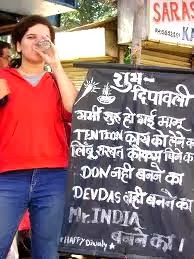 SARAS
KA
शुभ-
दिपावली
गर्मी शुरु हो गई मानू
TENTION कायको लेने का
लिंबू शरबत कोकम पिने का
DON नही बनने का
DEVDAS नही बनने का
Mr. INDIA
बनने का।
HAPPY Diwaly